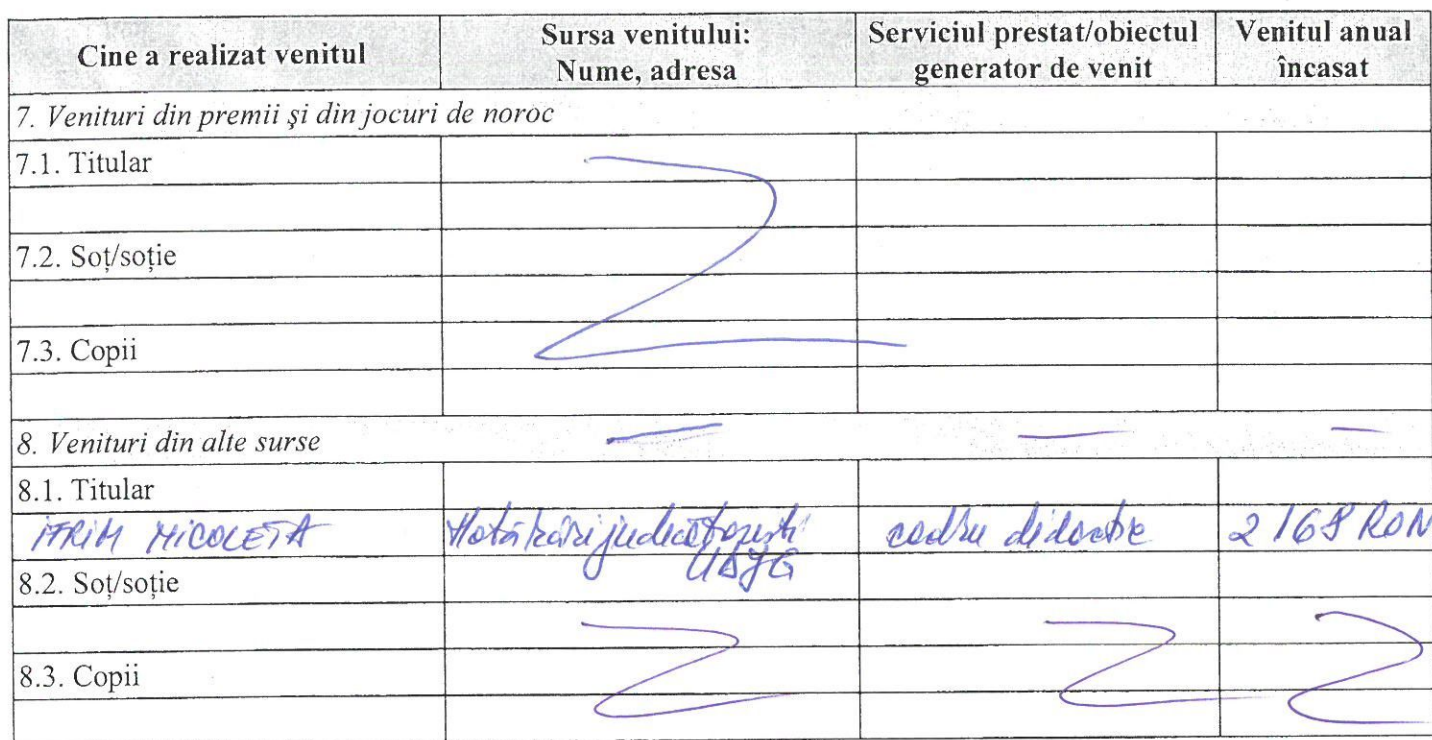 Cine a realizat venitul
Sursa venitului:
Nume, adresa
Serviciul prestat/obiectul
generator de venit
Venitul anual
încasat
7. Venituri din premii şi din jocuri de noroc
7.1. Titular
7.2. Soț/soție
7.3. Copii
8. Venituri din alte surse
8.1. Titular
IFRIM NICOLETA Hotărâri judecătorești cadru didactic 2168 RON
UDJG
8.2. Soț/soție
8.3. Copii